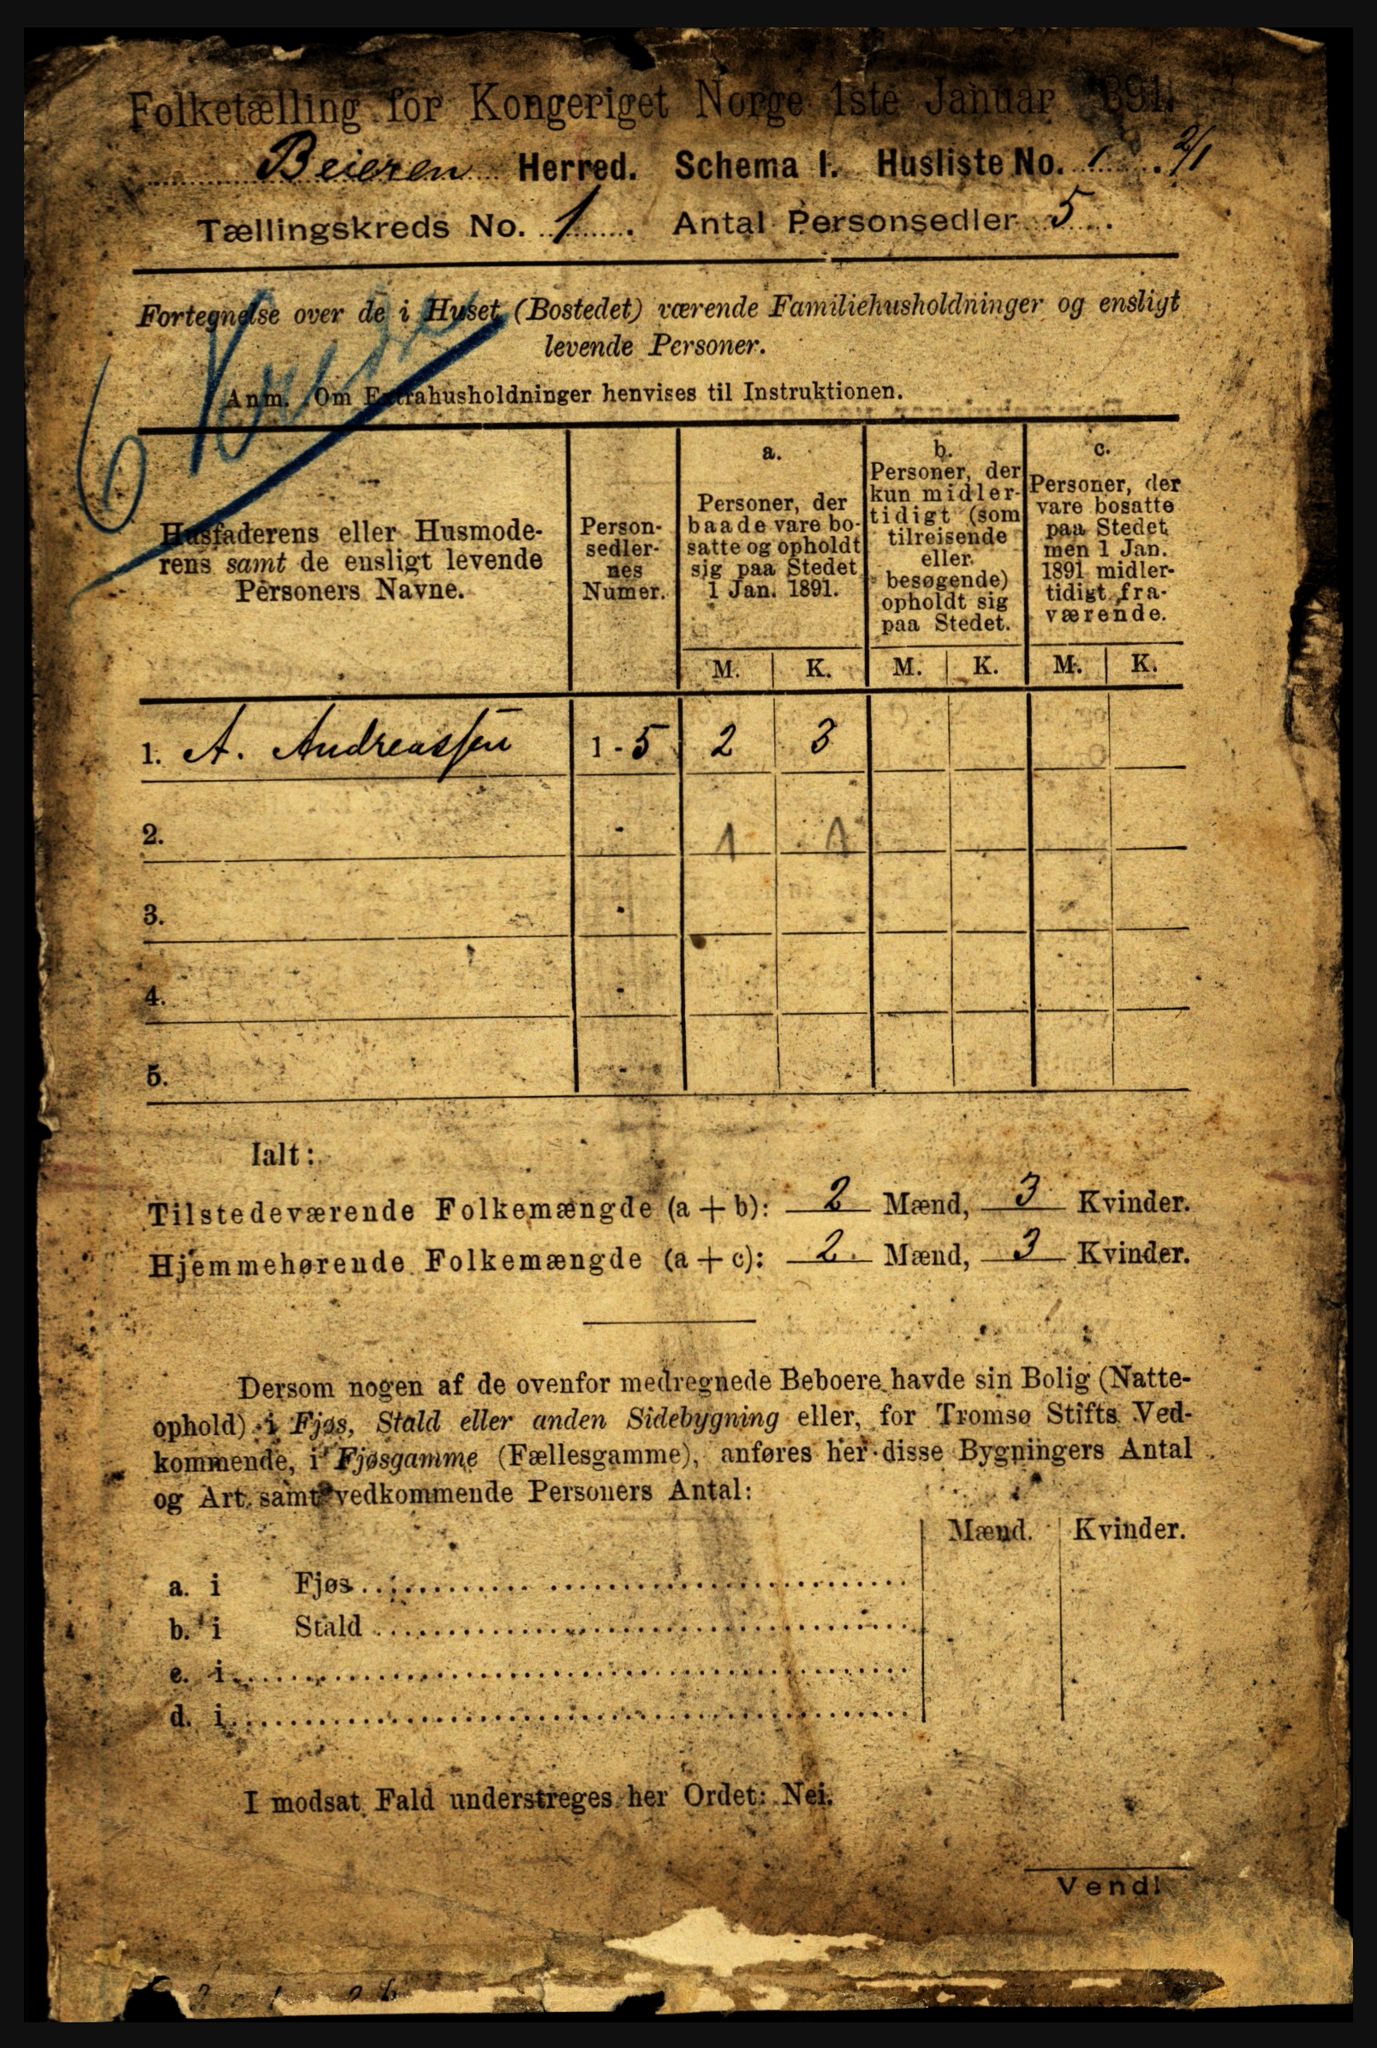 Folketælling for Kongeriget Norge 1ste Januar 1891.
Beieren Herred. Schema I. Husliste No. 1. 2/1
Tællingskreds No. 1. Antal Personsedler 5.
Fortegnelse over de i Huset (Bostedet) værende Familiehusholdninger og ensligt
levende Personer.
Anm. Om Extrahusholdninger henvises til Instruktionen.
6 Kredse
Husfaderens eller Husmode-
rens samt de ensligt levende
Personers Navne.
Person-
sedler-
nes
Numer.
a.
Personer, der
baade vare bo-
satte og opholdt
sig paa Stedet
1 Jan. 1891.
b.
Personer, der
kun midler-
tidigt (som
tilreisende
eller
besøgende)
opholdt sig
paa Stedet.
c.
Personer, der
vare bosatte
paa Stedet
men 1 Jan.
1891 midler-
tidigt fra-
værende.
M. K. M. K. M. K.
1. A. Andreassen 1-5 2 3
2. - 1 1
3. -
4. -
5. -
Ialt:
Tilstedeværende Folkemængde (a + b): 2 Mænd, 3 Kvinder.
Hjemmehørende Folkemængde (a + c): 2 Mænd, 3 Kvinder.
Dersom nogen af de ovenfor medregnede Beboere havde sin Bolig (Natte-
ophold) i Fjøs, Stald eller anden Sidebygning eller, for Tromsø Stifts Ved-
kommende, i Fjøsgamme (Fællesgamme), anføres her disse Bygningers Antal
og Art samt vedkommende Personers Antal:
Mænd. Kvinder.
a. i Fjøs
b. i Stald
c. i
d. i
I modsat Fald understreges her Ordet: Nei.
Vend!